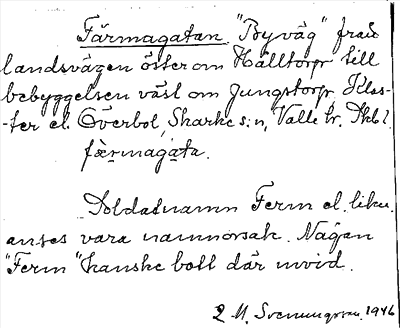 Färmagatan. "Byväg" från
landsvägen öster om Hålltorp till
bebyggelsen väst om Ljungstorp, Klos-
-ter el. Överbol, Sharke s:n, Valle hr.
færmagata.
Soldatnamn Ferm el. likn.
anses vara namnorsak. Någon
"Ferm" kanske bott där invid.
M. Svenungsson, 1946